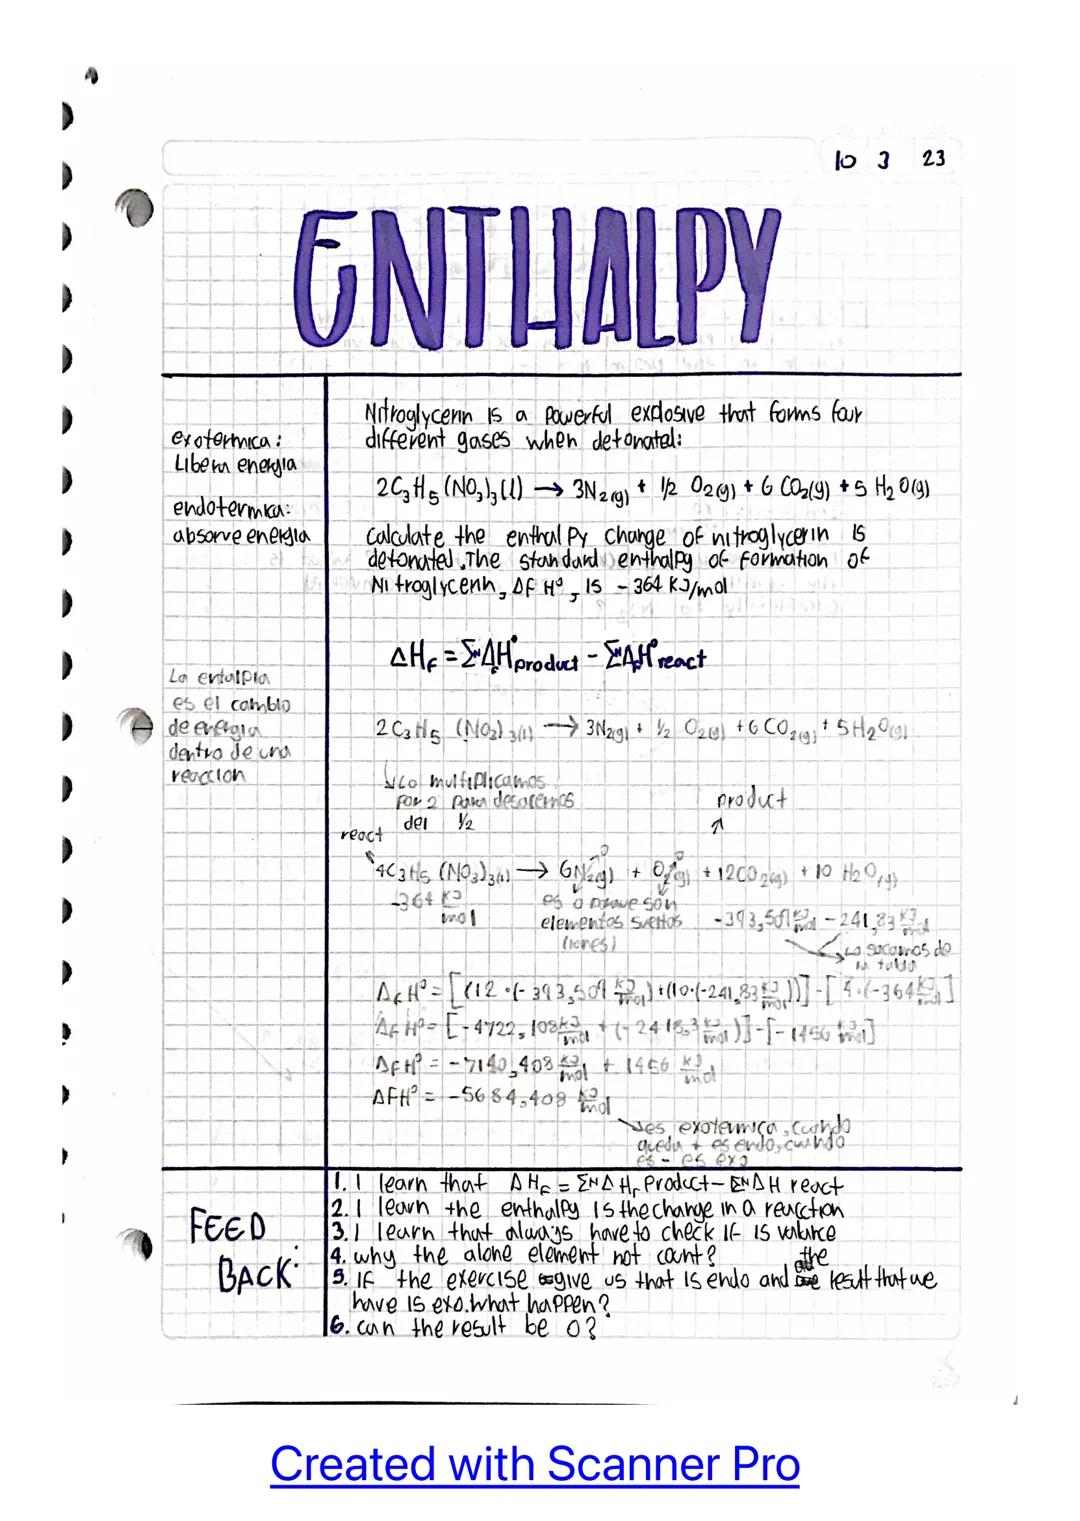 10 3 23
ENTHALPY
exotermica:
Libera energia
endotermica:
absorve energia
La entalpia
es el cambio
de energia
dentro de una
reaccion
Nitroglycerin is a powerful explosive that forms four
different gases when detonated:
2C₃H₅(NO₃)₃(l) → 3N₂(g) + 1/2 O₂(g) + 6 CO₂(g) + 5 H₂O(g)
Calculate the enthalpy change of nitroglycerin is
detonated. The standard enthalpy of formation of
Nitroglycerin, ΔF H°, is -364 KJ/mol
ΔH_F = ΣᴺΔH°product - ΣᴺΔH°react
2C₃H₅(NO₃)₃(l) → 3N₂(g) + 1/2 O₂(g) + 6CO₂(g) + 5H₂O(g)
↳Lo multiplicamos
por 2 para desacernos
del 1/2
product
react
4C₃H₅(NO₃)₃(l) → 6N₂(g) + O₂(g) + 12CO₂(g) + 10 H₂O(g)
0 0
-364 KJ/mol
es 0 porque son
elementos sueltos
(iones)
-393,509 KJ/mol -241,83 KJ/mol
Lo sacamos de
la tabla
ΔFH° = [(12·(-393,509 KJ/mol)+(10·(-241,83 KJ/mol))] - [4·(-364 KJ/mol]
ΔFH° = [-4722,108 KJ/mol + (-2418,3 KJ/mol)] - [-1456 KJ/mol]
ΔFH° = -7140,408 KJ/mol + 1456 KJ/mol
ΔFH° = -5684,408 KJ/mol
↳es exotermica, cuando
queda + es endo, cuando
es - es exo
FEED
BACK:
1. I learn that ΔH_F = ΣᴺΔH_F Product - ΣᴺΔH react
2. I learn the enthalpy is the change in a reacction
3. I learn that always have to check if is valance
4. why the alone element not count?
5. IF the exercise give us that is endo and the result that we
have is exo. what happen?
6. can the result be 0?
Created with Scanner Pro